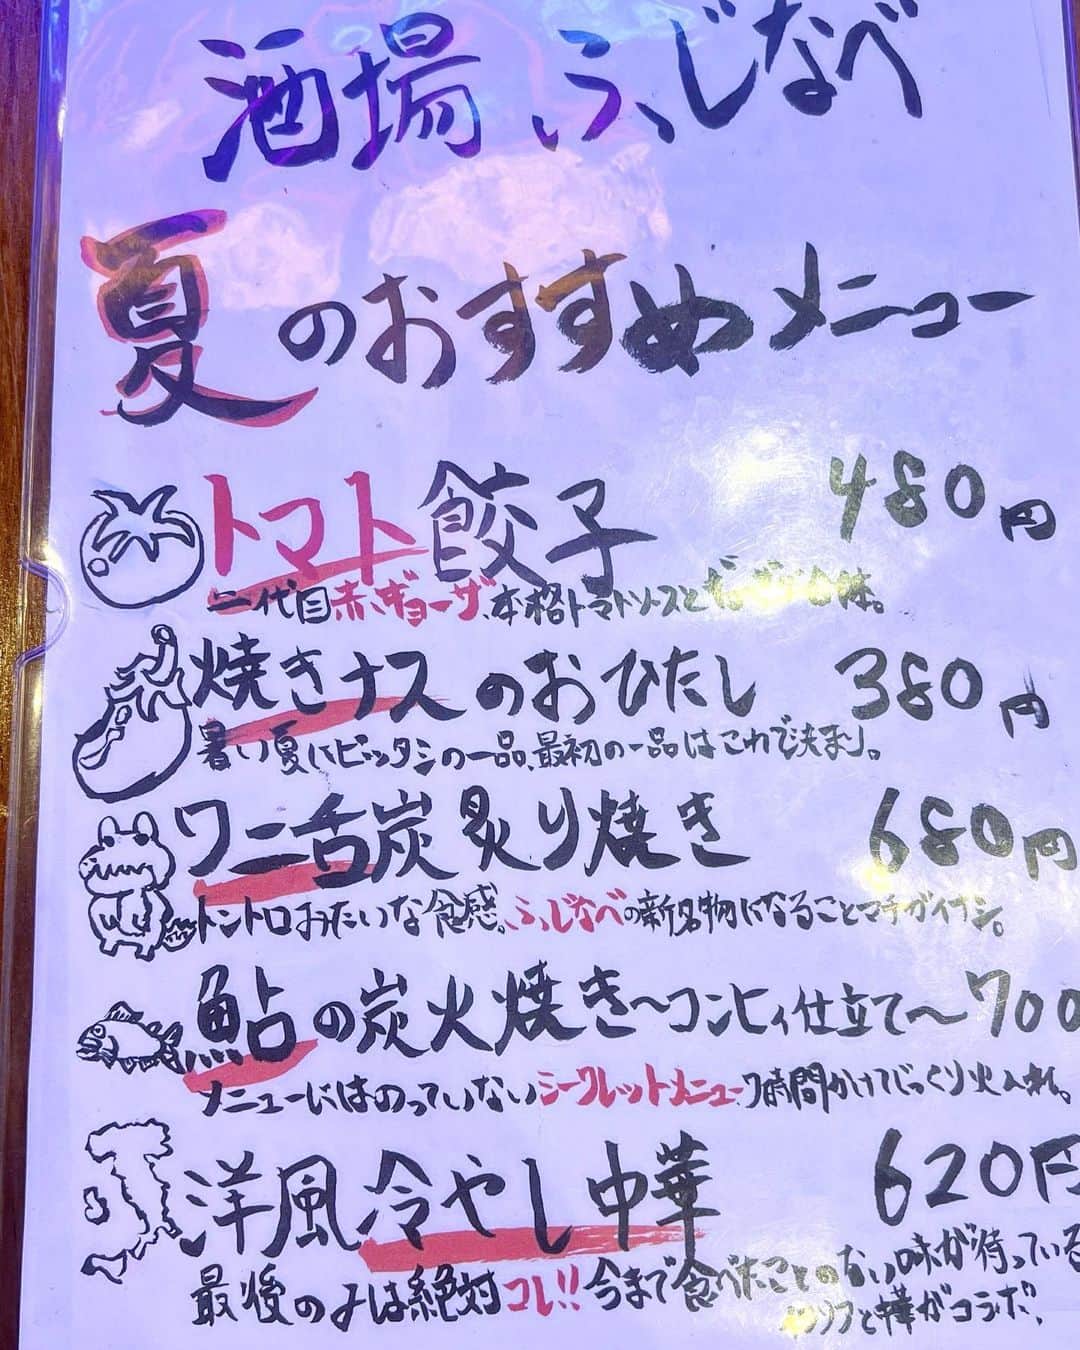 酒場 ふじなべ
夏のおすすめメニュー
トマト餃子 480円
二代目赤いギョーザ、本格トマトソースと
焼きナスのおひたし 380円
暑い夏にピッタシの一品、最初の一品はこれで決まり。
ワニ舌炭炙り焼き 680円
トントロみたいな食感。ふじなべの新名物になることマチガイナシ。
鮎の炭火焼き〜コンヒィ仕立て〜 700
メニューにはのっていないシークレットメニュー、7時間かけてじっくり火入れ。
洋風冷やし中華 620円
最後の〆は絶対コレ!!今まで食べたことのない味が待っている
と中華がコラボ。